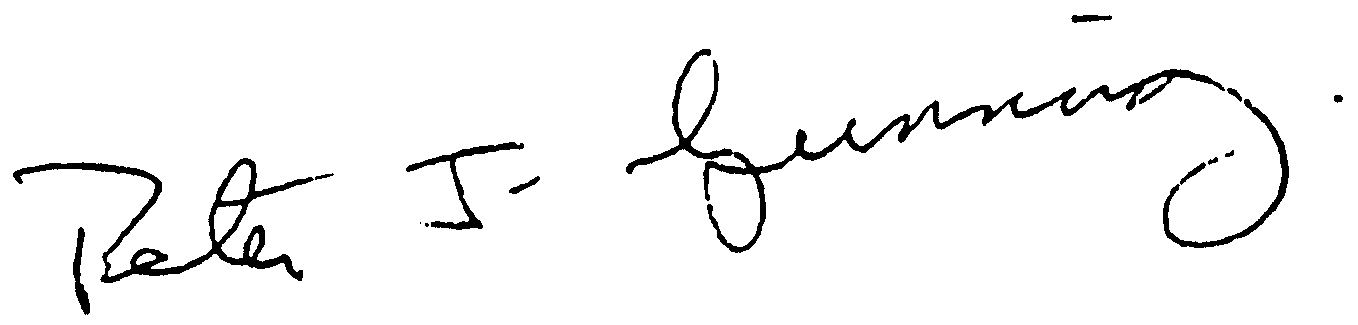 Peter J. Gunning